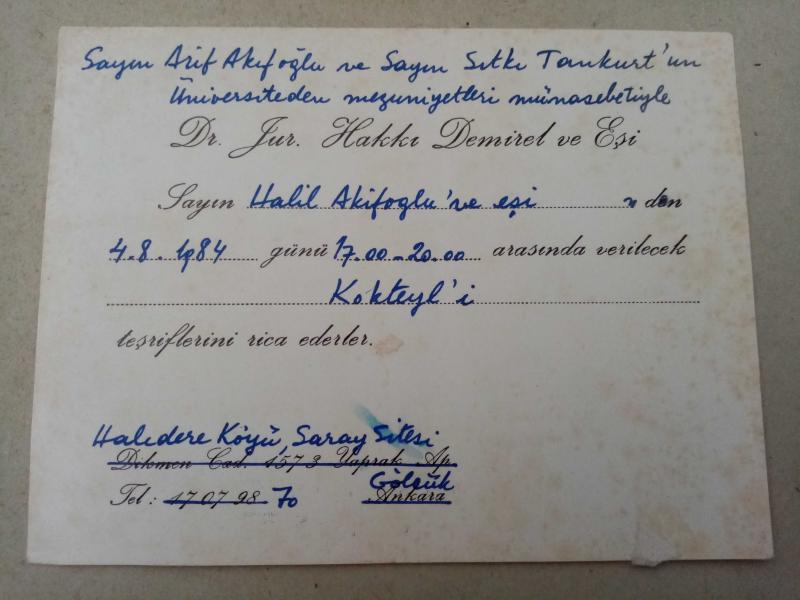 Sayın Arif Akıfoğlu ve Sayın Sıtkı Tankurt'un
Üniversiteden mezuniyetleri münasebetiyle
Dr. Jur. Hakkı Demirel ve Eşi
Sayın Halil Akifoglu've eşi n den
4.8.1984 günü 17.00-20.00 arasında verilecek
Kokteyl'i
teşriflerini rica ederler.
Halıdere Köyü, Saray Sitesi
Dikmen Cad. 157 3 Yaprak Ap.
Gölcük
Tel: 17 07 98 70 Ankara